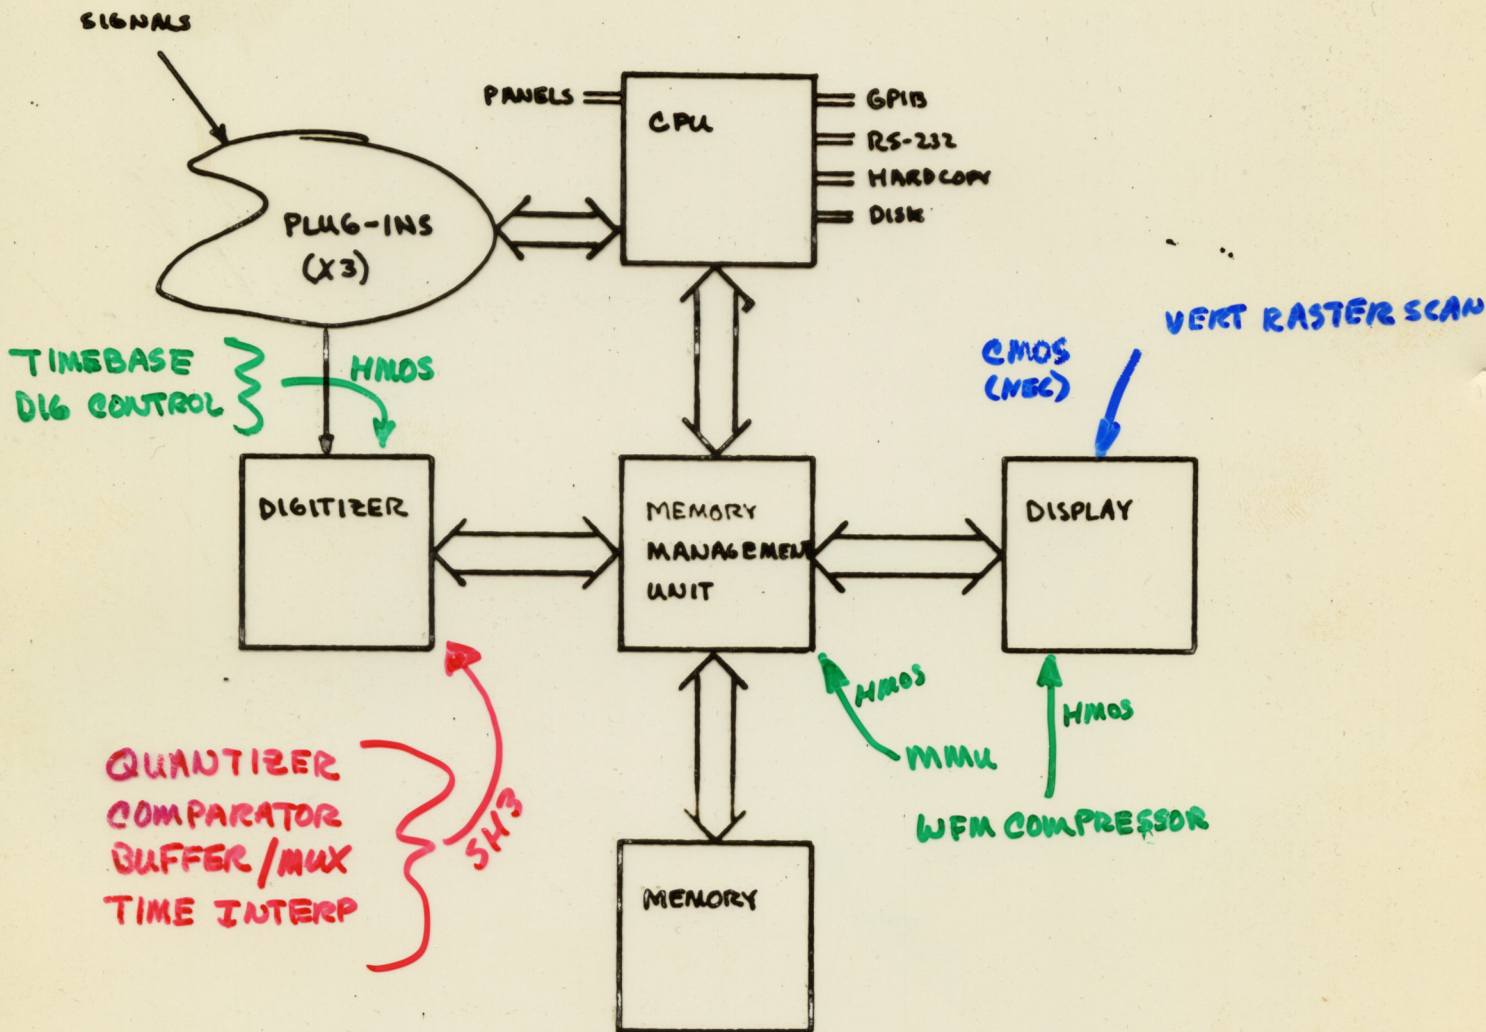 SIGNALS
PANELS
CPU
GPIB
RS-232
HARDCOPY
DISK
PLUG-INS
(X3)
VERT RASTER SCAN
CMOS
(NEC)
TIMEBASE
DIG CONTROL
HMOS
DIGITIZER
MEMORY
MANAGEMENT
UNIT
DISPLAY
HMOS
MMU
HMOS
WFM COMPRESSOR
QUANTIZER
COMPARATOR
BUFFER/MUX
TIME INTERP
SH3
MEMORY